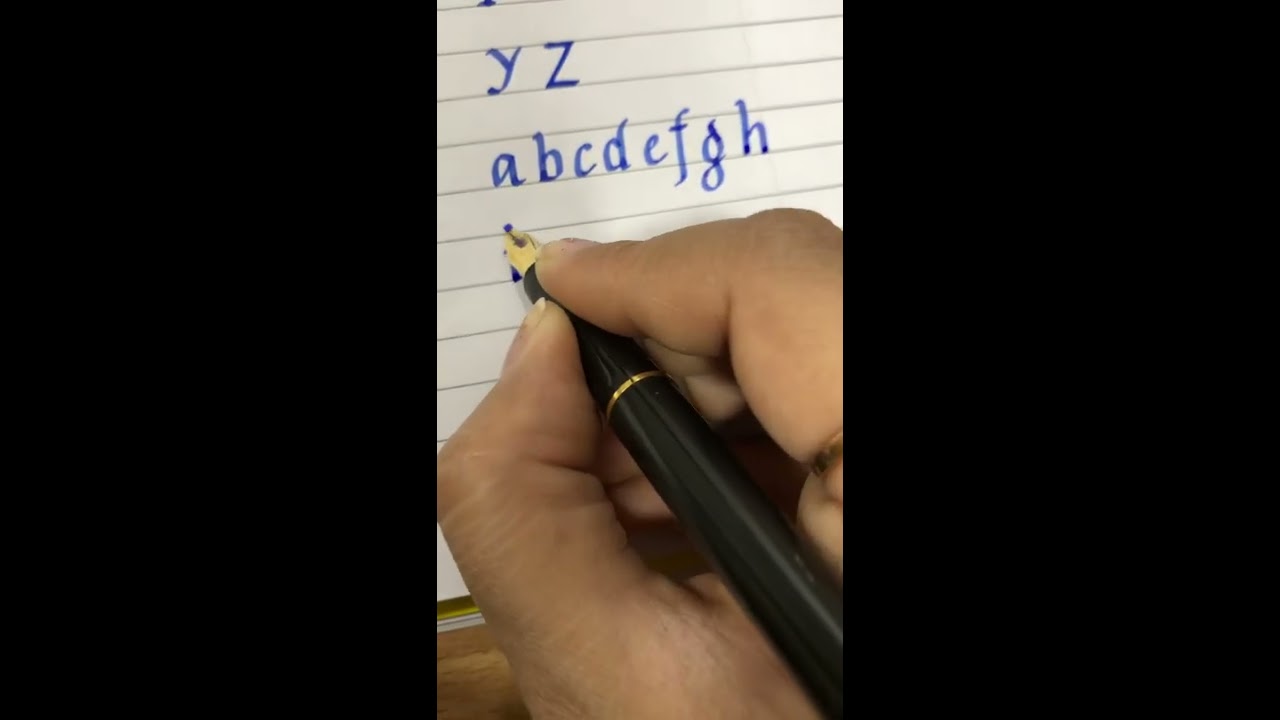 Y Z
a b c d e f g h